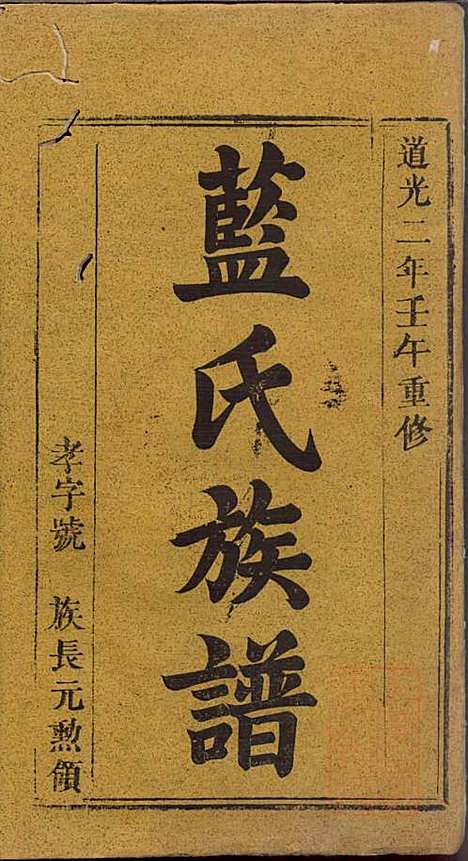 道光二年壬午重修
藍氏族譜
孝字號　族長元勲領